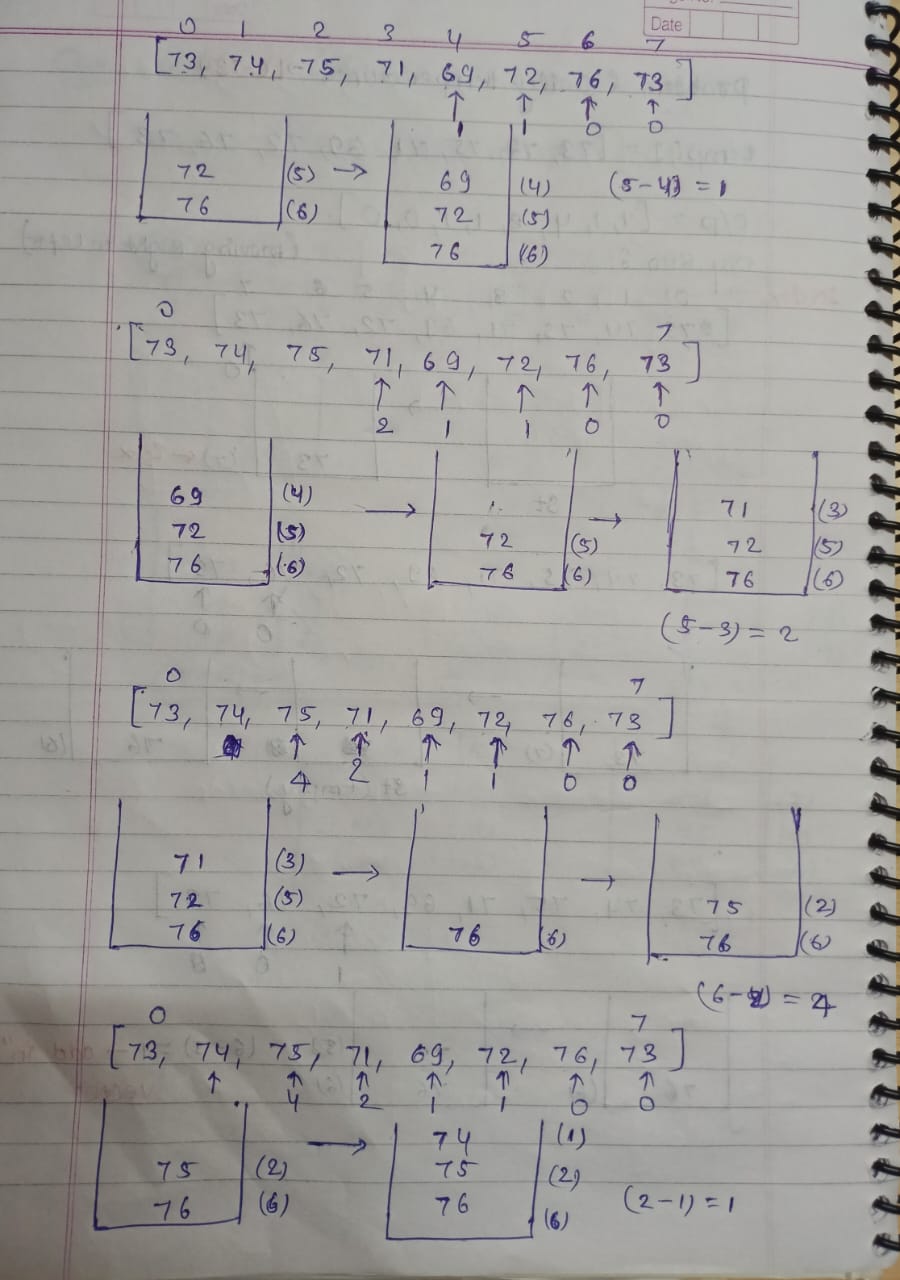 Date
0 1 2 3 4 5 6 7
[73, 74, 75, 71, 69, 72, 76, 73]
↑ ↑ ↑ ↑
1 1 0 0
72 (5) → 69 (4) (5-4) = 1
76 (6) 72 (5)
76 (6)
0 7
[73, 74, 75, 71, 69, 72, 76, 73]
↑ ↑ ↑ ↑ ↑
2 1 1 0 0
69 (4) → → 71 (3)
72 (5) 72 (5) 72 (5)
76 (6) 76 (6) 76 (6)
(5-3) = 2
0 7
[73, 74, 75, 71, 69, 72, 76, 73]
↑ ↑ ↑ ↑ ↑ ↑
4 2 1 1 0 0
71 (3) → →
72 (5) 75 (2)
76 (6) 76 (6) 76 (6)
(6-2) = 4
0 7
[73, 74, 75, 71, 69, 72, 76, 73]
↑ ↑ ↑ ↑ ↑ ↑ ↑
4 2 1 1 0 0
→ 74 (1)
75 (2) 75 (2)
76 (6) 76 (6) (2-1) = 1